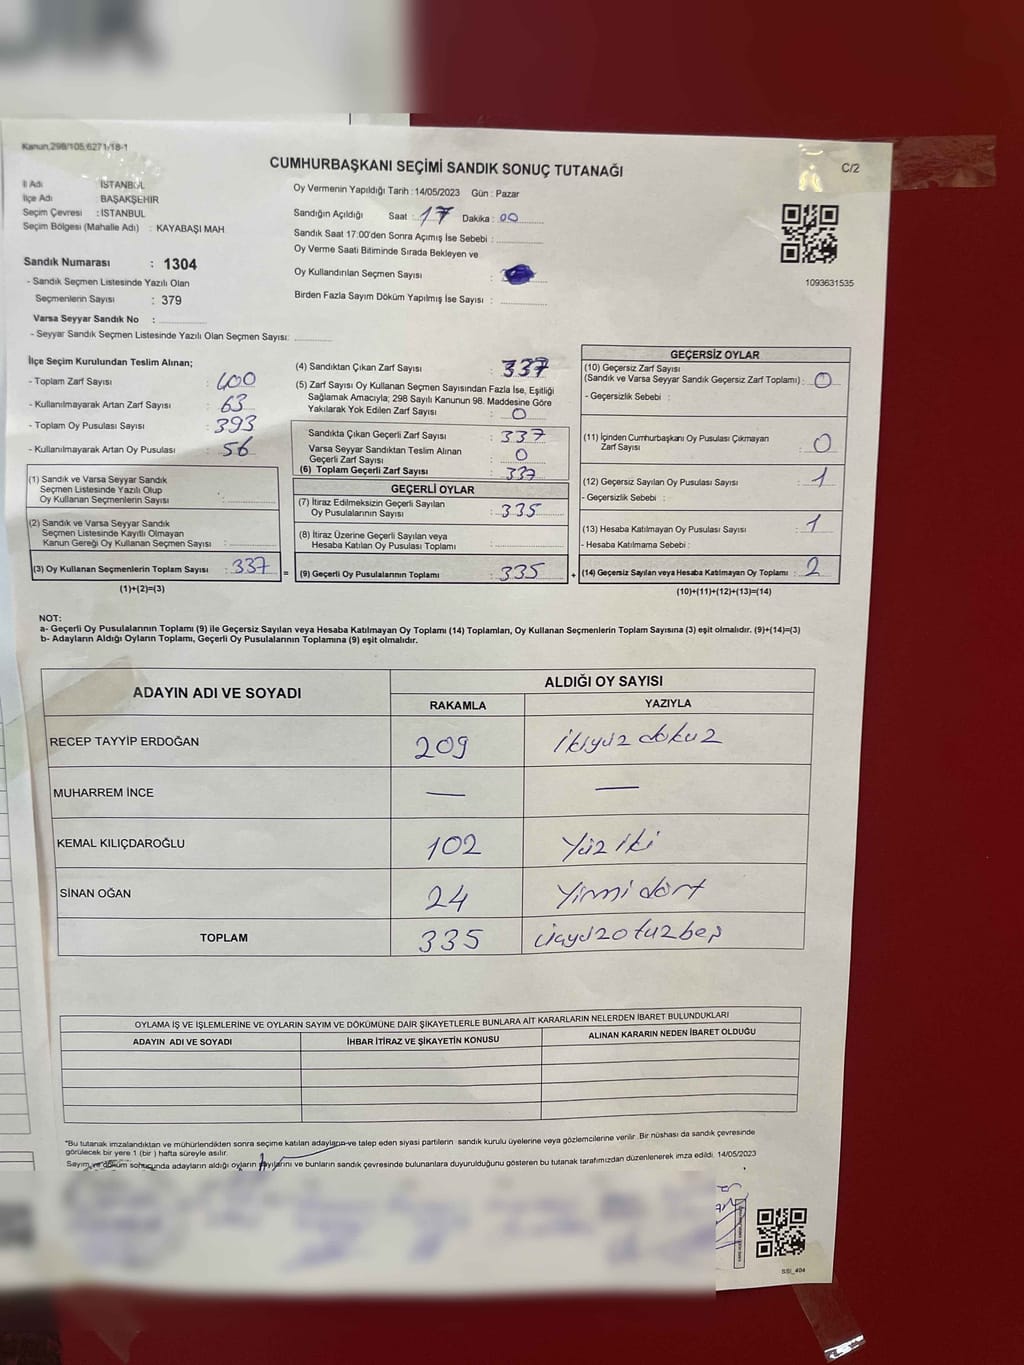 Kanun,298/105,6271/18-1
CUMHURBAŞKANI SEÇİMİ SANDIK SONUÇ TUTANAĞI
C/2
İl Adı : İSTANBUL
İlçe Adı BAŞAKŞEHİR
Seçim Çevresi : İSTANBUL
Seçim Bölgesi (Mahalle Adı) : KAYABAŞI MAH
Sandık Numarası : 1304
- Sandık Seçmen Listesinde Yazılı Olan
Seçmenlerin Sayısı : 379
Varsa Seyyar Sandık No :
- Seyyar Sandık Seçmen Listesinde Yazılı Olan Seçmen Sayısı:
Oy Vermenin Yapıldığı Tarih : 14/05/2023 Gün : Pazar
Sandığın Açıldığı Saat : 17 Dakika : 00
Sandık Saat 17:00'den Sonra Açımış İse Sebebi :
Oy Verme Saati Bitiminde Sırada Bekleyen ve
Oy Kullandırılan Seçmen Sayısı :
Birden Fazla Sayım Döküm Yapılmış İse Sayısı :
1093631535
İlçe Seçim Kurulundan Teslim Alınan;
- Toplam Zarf Sayısı : 400
- Kullanılmayarak Artan Zarf Sayısı : 63
- Toplam Oy Pusulası Sayısı : 393
- Kullanılmayarak Artan Oy Pusulası : 56
(1) Sandık ve Varsa Seyyar Sandık
Seçmen Listesinde Yazılı Olup
Oy Kullanan Seçmenlerin Sayısı :
(2) Sandık ve Varsa Seyyar Sandık
Seçmen Listesinde Kayıtlı Olmayan
Kanun Gereği Oy Kullanan Seçmen Sayısı :
(3) Oy Kullanan Seçmenlerin Toplam Sayısı : 337
(1)+(2)=(3)
(4) Sandıktan Çıkan Zarf Sayısı : 337
(5) Zarf Sayısı Oy Kullanan Seçmen Sayısından Fazla İse, Eşitliği
Sağlamak Amacıyla; 298 Sayılı Kanunun 98. Maddesine Göre
Yakılarak Yok Edilen Zarf Sayısı : 0
Sandıkta Çıkan Geçerli Zarf Sayısı : 337
Varsa Seyyar Sandıktan Teslim Alınan
Geçerli Zarf Sayısı : 0
(6) Toplam Geçerli Zarf Sayısı : 337
GEÇERLİ OYLAR
(7) İtiraz Edilmeksizin Geçerli Sayılan
Oy Pusulalarının Sayısı : 335
(8) İtiraz Üzerine Geçerli Sayılan veya
Hesaba Katılan Oy Pusulası Toplamı :
= (9) Geçerli Oy Pusulalarının Toplamı : 335
GEÇERSİZ OYLAR
(10) Geçersiz Zarf Sayısı
(Sandık ve Varsa Seyyar Sandık Geçersiz Zarf Toplamı) : 0
- Geçersizlik Sebebi :
(11) İçinden Cumhurbaşkanı Oy Pusulası Çıkmayan
Zarf Sayısı : 0
(12) Geçersiz Sayılan Oy Pusulası Sayısı : 1
- Geçersizlik Sebebi :
(13) Hesaba Katılmayan Oy Pusulası Sayısı : 1
- Hesaba Katılmama Sebebi :
+ (14) Geçersiz Sayılan veya Hesaba Katılmayan Oy Toplamı : 2
(10)+(11)+(12)+(13)=(14)
NOT:
a- Geçerli Oy Pusulalarının Toplamı (9) ile Geçersiz Sayılan veya Hesaba Katılmayan Oy Toplamı (14) Toplamları, Oy Kullanan Seçmenlerin Toplam Sayısına (3) eşit olmalıdır. (9)+(14)=(3)
b- Adayların Aldığı Oyların Toplamı, Geçerli Oy Pusulalarının Toplamına (9) eşit olmalıdır.
ADAYIN ADI VE SOYADI ALDIĞI OY SAYISI
RAKAMLA YAZIYLA
RECEP TAYYİP ERDOĞAN 209 ikiyüz dokuz
MUHARREM İNCE — —
KEMAL KILIÇDAROĞLU 102 Yüz iki
SİNAN OĞAN 24 Yirmi dört
TOPLAM 335 üçyüzotuzbeş
OYLAMA İŞ VE İŞLEMLERİNE VE OYLARIN SAYIM VE DÖKÜMÜNE DAİR ŞİKAYETLERLE BUNLARA AİT KARARLARIN NELERDEN İBARET BULUNDUKLARI
ADAYIN ADI VE SOYADI İHBAR İTİRAZ VE ŞİKAYETİN KONUSU ALINAN KARARIN NEDEN İBARET OLDUĞU
"Bu tutanak imzalandıktan ve mühürlendikten sonra seçime katılan adayların ve talep eden siyasi partilerin sandık kurulu üyelerine veya gözlemcilerine verilir. Bir nüshası da sandık çevresinde
görülecek bir yere 1 (bir) hafta süreyle asılır.
Sayım ve döküm sonucunda adayların aldığı oyların sayılarını ve bunların sandık çevresinde bulunanlara duyurulduğunu gösteren bu tutanak tarafımızdan düzenlenerek imza edildi. 14/05/2023
SSI_404